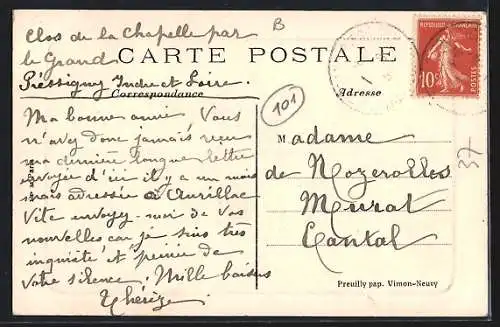 Clos de la Chapelle par
le Grand
Préssigny Indre et Loire.
B
CARTE POSTALE
Correspondance
Adresse
101
RÉPUBLIQUE FRANÇAISE
10c
POSTES
37
Ma bonne amie Vous
n'avez donc jamais reçu
ma dernière longue lettre
envoyée d'ici il y a un mois
mais adressée à Aurillac
Vite envoyez-moi de vos
nouvelles car je suis très
inquiète et peinée de
votre silence. Mille baisers
Thérèse
Madame
de Nozerolles
Murat
Cantal
Preuilly pap. Vimon-Neuvy